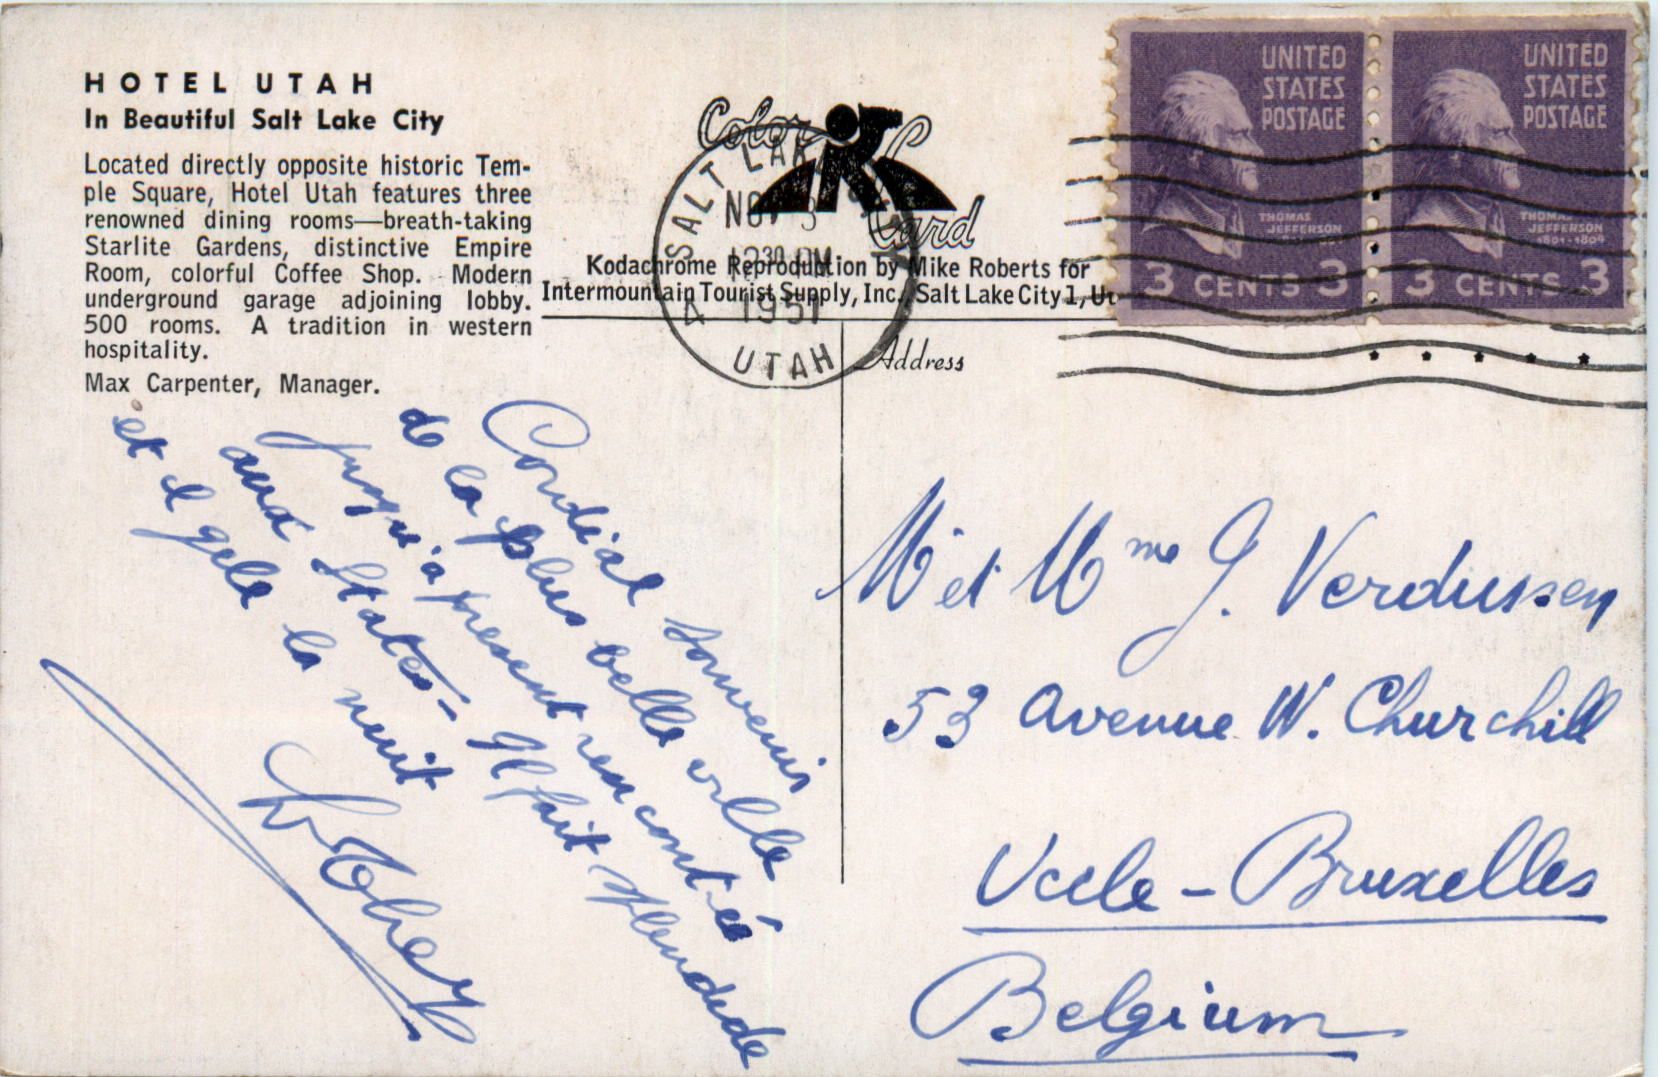 HOTEL UTAH
In Beautiful Salt Lake City
Located directly opposite historic Tem-
ple Square, Hotel Utah features three
renowned dining rooms—breath-taking
Starlite Gardens, distinctive Empire
Room, colorful Coffee Shop. Modern
underground garage adjoining lobby.
500 rooms. A tradition in western
hospitality.
Max Carpenter, Manager.
Color
Card
Kodachrome Reproduction by Mike Roberts for
Intermountain Tourist Supply, Inc., Salt Lake City 1, Ut
SALT LAKE
NOV 3
12 30 PM
1951
UTAH
UNITED
STATES
POSTAGE
THOMAS
JEFFERSON
3 CENTS 3
UNITED
STATES
POSTAGE
THOMAS
JEFFERSON
1801-1809
3 CENTS 3
Address
Cordial souvenir
de la plus belle ville
jusqu'à present rencontrée
aux States - Il fait splendide
et il gele la nuit
M et Mme J. Verdussen
53 Avenue W. Churchill
Uccle - Bruxelles
Belgium